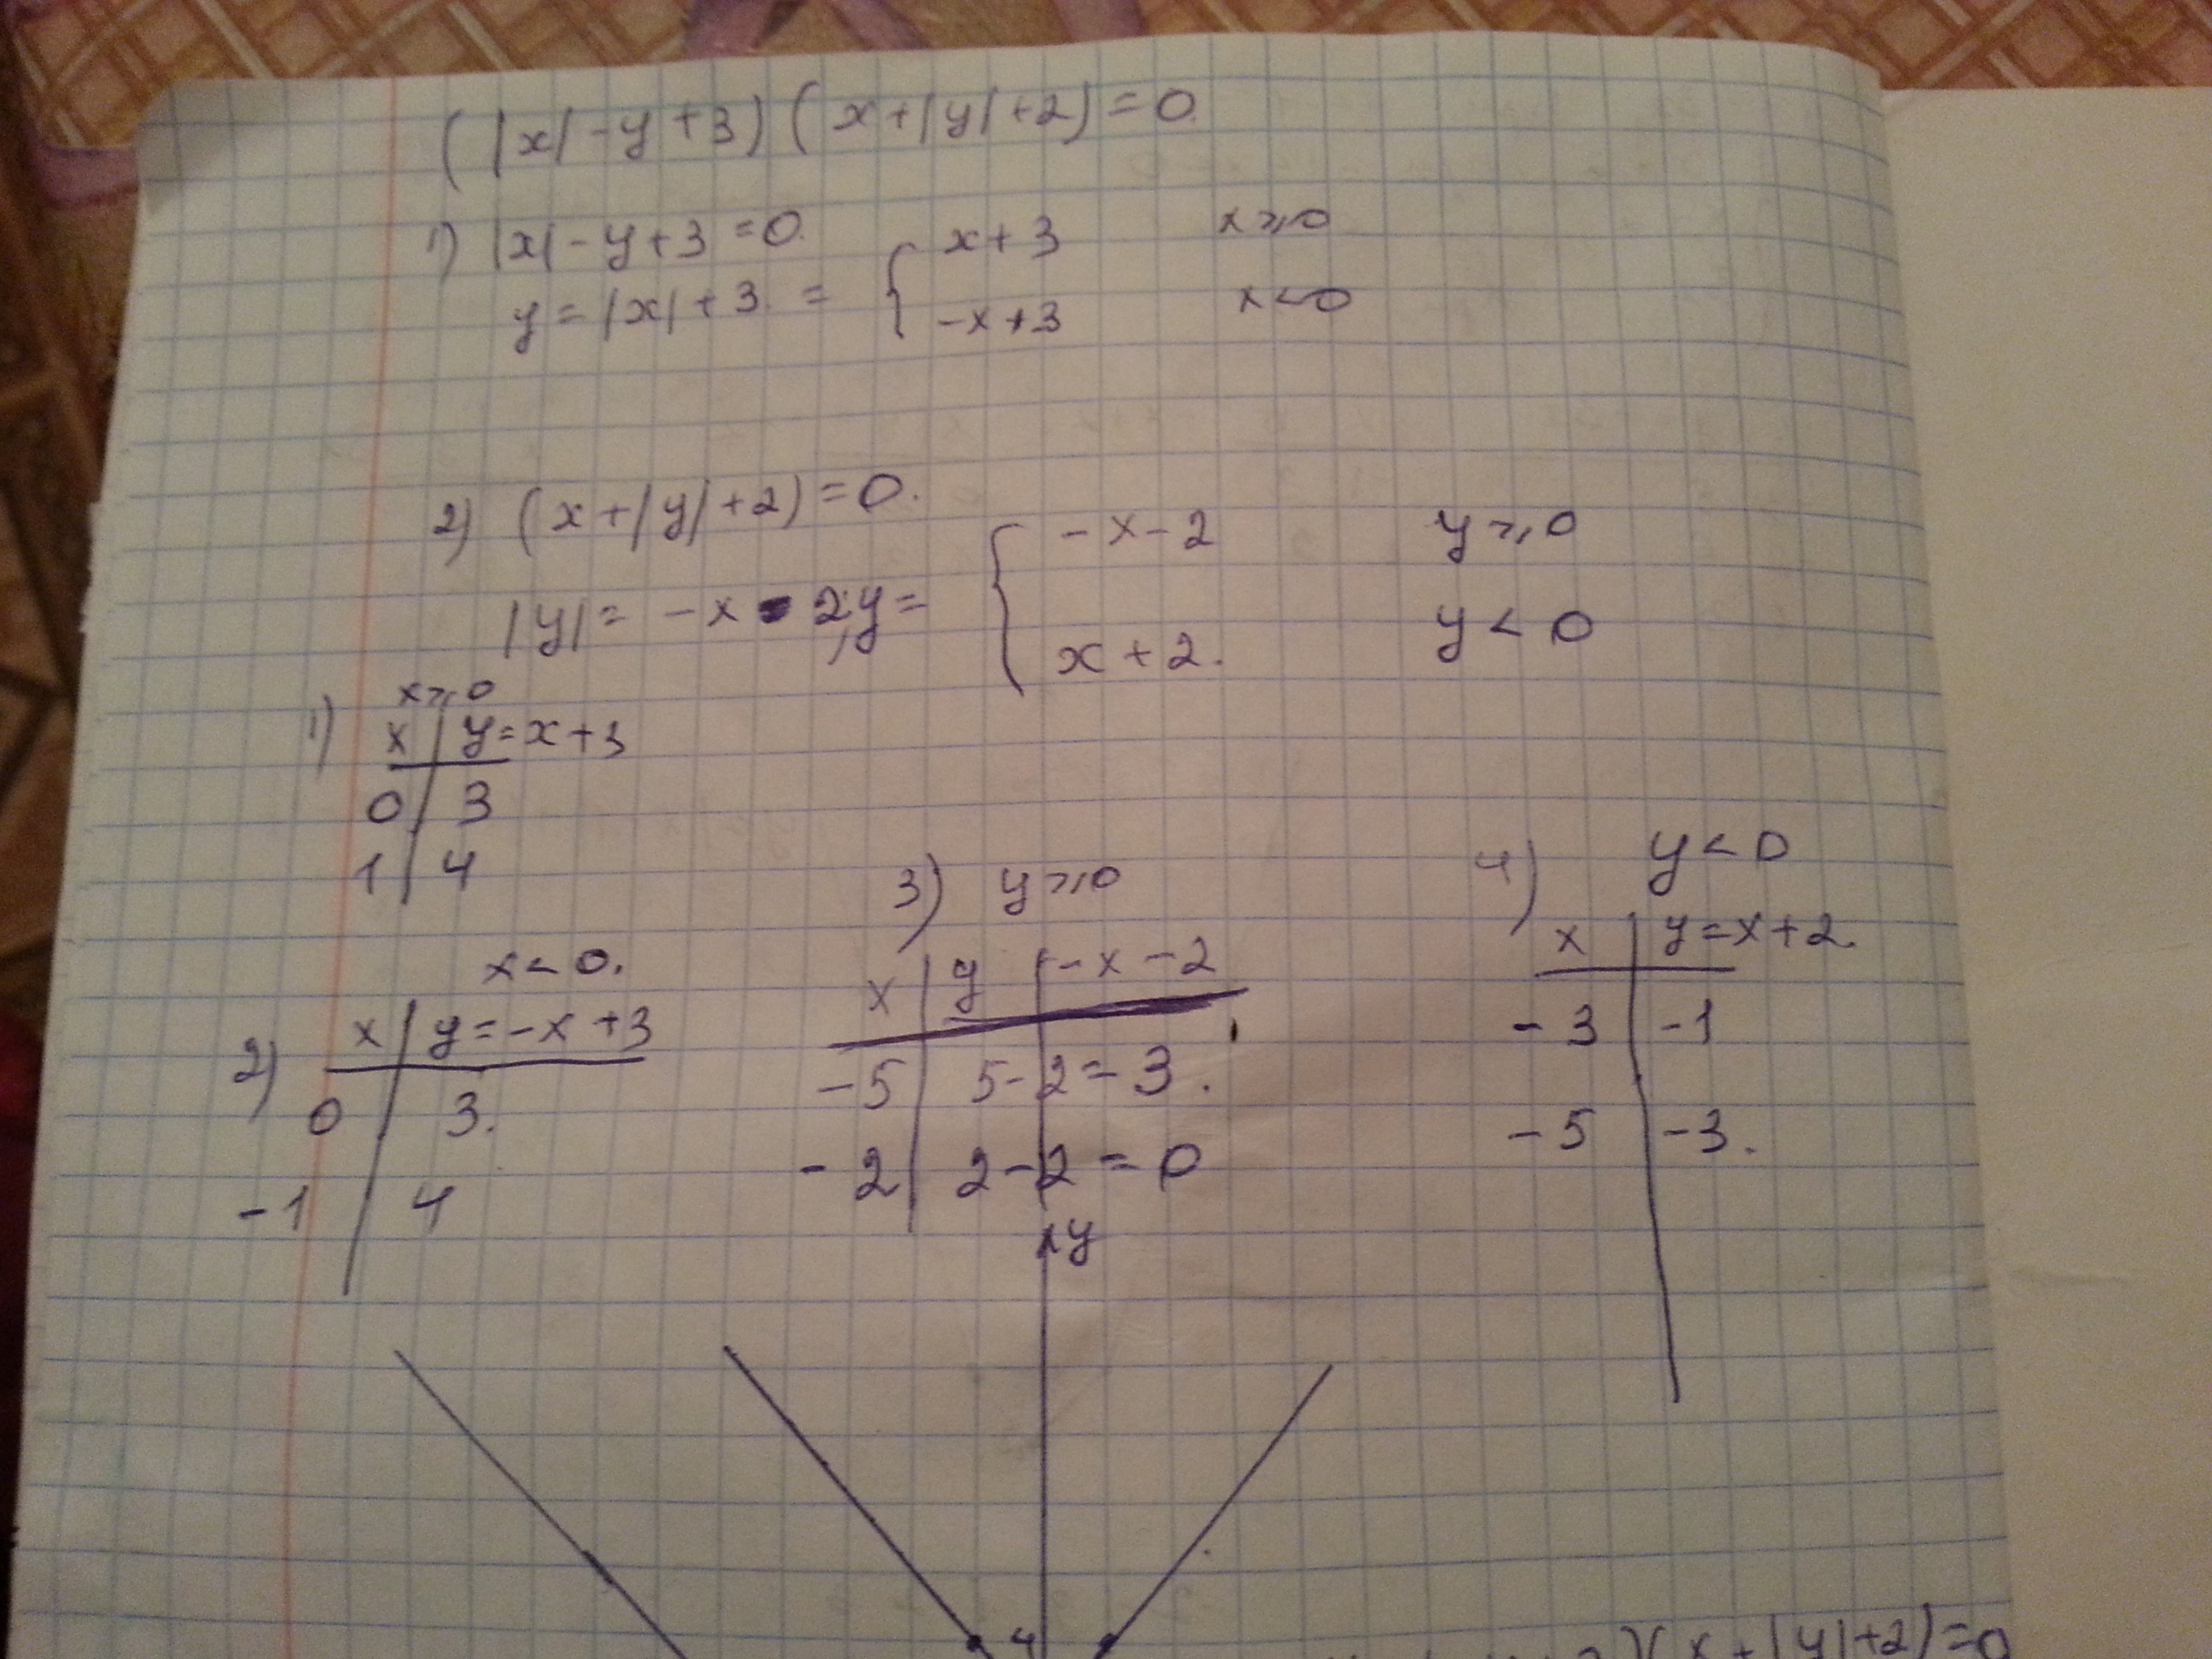 (|x|-y+3)(x+|y|+2)=0.
1) |x|-y+3=0.
y=|x|+3.= { x+3 x⩾0
-x+3 x<0
2) (x+|y|+2)=0.
|y|= -x-2, y= { -x-2 y⩾0
x+2. y<0
1) x⩾0
x | y=x+3
0 | 3
1 | 4
2) x<0.
x | y=-x+3
0 | 3.
-1 | 4
3) y⩾0
x | y | -x-2
-5 | 5-2=3.
-2 | 2-2=0
4) y<0
x | y=x+2.
-3 | -1
-5 | -3.
y
4
)(x+|y|+2)=0